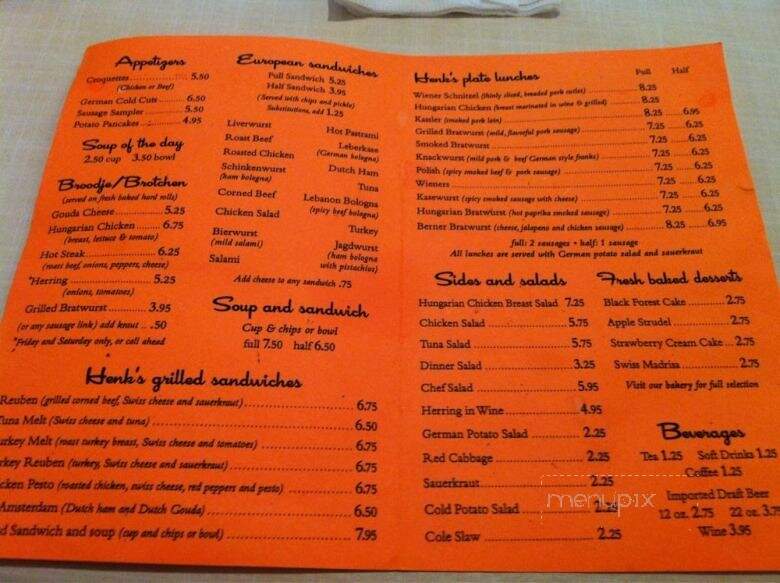 Appetizers
Croquettes 5.50
(Chicken or Beef)
German Cold Cuts 6.50
Sausage Sampler 5.50
Potato Pancakes 4.95
Soup of the day
2.50 cup 3.50 bowl
Broodje/Brotchen
(served on fresh baked hard rolls)
Gouda Cheese 5.25
Hungarian Chicken 6.75
(breast, lettuce & tomato)
Hot Steak 6.25
(roast beef, onions, peppers, cheese)
*Herring 5.25
(onions, tomatoes)
Grilled Bratwurst 3.95
(or any sausage link) add kraut .. .50
*Friday and Saturday only, or call ahead
European sandwiches
Full Sandwich 5.25
Half Sandwich 3.95
(Served with chips and pickle)
Substitutions, add 1.25
Liverwurst
Roast Beef
Roasted Chicken
Schinkenwurst
(ham bologna)
Corned Beef
Chicken Salad
Bierwurst
(mild salami)
Salami
Hot Pastrami
Leberkase
(German bologna)
Dutch Ham
Tuna
Lebanon Bologna
(spicy beef bologna)
Turkey
Jagdwurst
(ham bologna
with pistachios)
Add cheese to any sandwich .75
Soup and sandwich
Cup & chips or bowl
full 7.50 half 6.50
Henk's grilled sandwiches
Reuben (grilled corned beef, Swiss cheese and sauerkraut) 6.75
Tuna Melt (Swiss cheese and tuna) 6.50
urkey Melt (roast turkey breast, Swiss cheese and tomatoes) 6.75
rkey Reuben (turkey, Swiss cheese and sauerkraut) 6.75
icken Pesto (roasted chicken, swiss cheese, red peppers and pesto) 6.75
Amsterdam (Dutch ham and Dutch Gouda) 6.50
d Sandwich and soup (cup and chips or bowl) 7.95
Henk's plate lunches Full Half
Wiener Schnitzel (thinly sliced, breaded pork cutlet) 8.25
Hungarian Chicken (breast marinated in wine & grilled) 8.25
Kassler (smoked pork loin) 8.25 6.95
Grilled Bratwurst (mild, flavorful pork sausage) 7.25 6.25
Smoked Bratwurst 7.25 6.25
Knackwurst (mild pork & beef German style franks) 7.25 6.25
Polish (spicy smoked beef & pork sausage) 7.25 6.25
Wieners 7.25 6.25
Kasewurst (spicy smoked sausage with cheese) 7.25 6.25
Hungarian Bratwurst (hot paprika smoked sausage) 7.25 6.25
Berner Bratwurst (cheese, jalapeno and chicken sausage) 8.25 6.95
full: 2 sausages • half: 1 sausage
All lunches are served with German potato salad and sauerkraut
Sides and salads
Hungarian Chicken Breast Salad 7.25
Chicken Salad 5.75
Tuna Salad 5.75
Dinner Salad 3.25
Chef Salad 5.95
Herring in Wine 4.95
German Potato Salad 2.25
Red Cabbage 2.25
Sauerkraut 2.25
Cold Potato Salad 2.25
Cole Slaw 2.25
Fresh baked desserts
Black Forest Cake 2.75
Apple Strudel 2.75
Strawberry Cream Cake 2.75
Swiss Madrisa 2.75
Visit our bakery for full selection
Beverages
Tea 1.25 Soft Drinks 1.25
Coffee 1.25
Imported Draft Beer
12 oz. 2.75 22 oz. 3.75
Wine 3.95
menupix